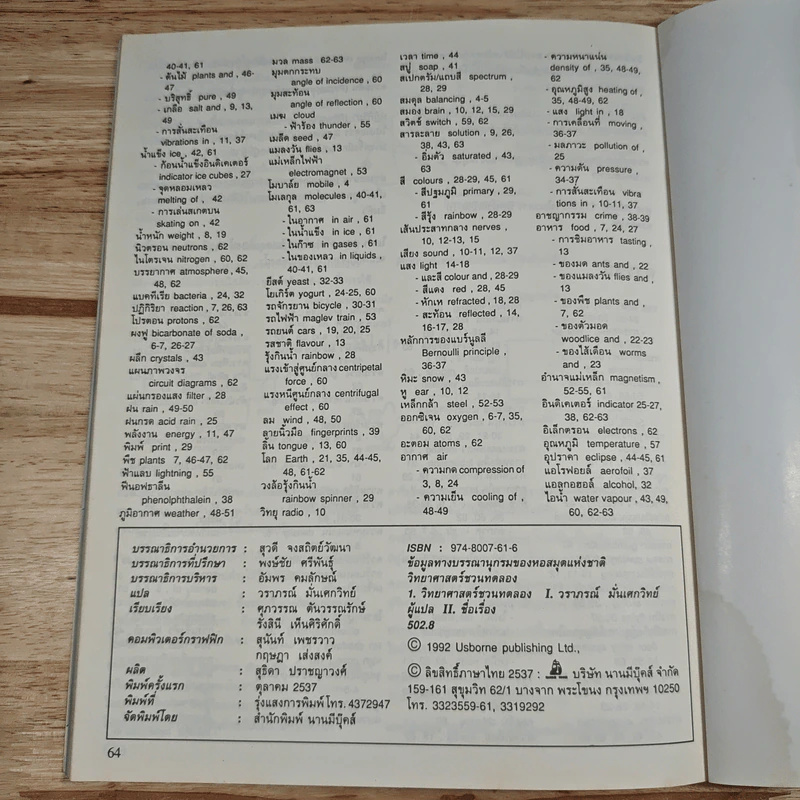 40-41, 61
- ต้นไม้ plants and , 46-
47
- บริสุทธิ์ pure , 49
- เกลือ salt and , 9, 13,
49
- การสั่นสะเทือน
vibrations in , 11, 37
น้ำแข็ง ice , 42, 61
- ก้อนน้ำแข็งอินดิเคเตอร์
indicator ice cubes , 27
- จุดหลอมเหลว
melting of , 42
- การเล่นสเกตบน
skating on , 42
น้ำหนัก weight , 8, 19
นิวตรอน neutrons , 62
ไนโตรเจน nitrogen , 60, 62
บรรยากาศ atmosphere , 45,
48, 62
แบคทีเรีย bacteria , 24, 32
ปฏิกิริยา reaction , 7, 26, 63
โปรตอน protons , 62
ผงฟู bicarbonate of soda ,
6-7, 26-27
ผลึก crystals , 43
แผนภาพวงจร
circuit diagrams , 62
แผ่นกรองแสง filter , 28
ฝน rain , 49-50
ฝนกรด acid rain , 25
พลังงาน energy , 11, 47
พิมพ์ print , 29
พืช plants 7, 46-47, 62
ฟ้าแลบ lightning , 55
ฟีนอฟธาลีน
phenolphthalein , 38
ภูมิอากาศ weather , 48-51
มวล mass 62-63
มุมตกกระทบ
angle of incidence , 60
มุมสะท้อน
angle of reflection , 60
เมฆ cloud
- ฟ้าร้อง thunder , 55
เมล็ด seed , 47
แมลงวัน flies , 13
แม่เหล็กไฟฟ้า
electromagnet , 53
โมบาล์ย mobile , 4
โมเลกุล molecules , 40-41,
61, 63
- ในอากาศ in air , 61
- ในน้ำแข็ง in ice , 61
- ในก๊าซ in gases , 61
- ในของเหลว in liquids ,
40-41, 61
ยีสต์ yeast , 32-33
โยเกิร์ต yogurt , 24-25, 60
รถจักรยาน bicycle , 30-31
รถไฟฟ้า maglev train , 53
รถยนต์ cars , 19, 20, 25
รสชาติ flavour , 13
รุ้งกินน้ำ rainbow , 28
แรงเข้าสู่ศูนย์กลาง centripetal
force , 60
แรงหนีศูนย์กลาง centrifugal
effect , 60
ลม wind , 48, 50
ลายนิ้วมือ fingerprints , 39
ลิ้น tongue , 13, 60
โลก Earth , 21, 35, 44-45,
48, 61-62
วงล้อรุ้งกินน้ำ
rainbow spinner , 29
วิทยุ radio , 10
เวลา time , 44
สบู่ soap , 41
สเปกตรัม/แถบสี spectrum ,
28, 29
สมดุล balancing , 4-5
สมอง brain , 10, 12, 15, 29
สวิตช์ switch , 59, 62
สารละลาย solution , 9, 26,
38, 43, 63
- อิ่มตัว saturated , 43,
63
สี colours , 28-29, 45, 61
- สีปฐมภูมิ primary , 29,
61
- สีรุ้ง rainbow , 28-29
เส้นประสาทกลาง nerves ,
10, 12-13, 15
เสียง sound , 10-11, 12, 37
แสง light 14-18
- และสี colour and , 28-29
- สีแดง red , 28, 45
- หักเห refracted , 18, 28
- สะท้อน reflected , 14,
16-17, 28
หลักการของแบร์นูลลี
Bernoulli principle ,
36-37
หิมะ snow , 43
หู ear , 10, 12
เหล็กกล้า steel , 52-53
ออกซิเจน oxygen , 6-7, 35,
60, 62
อะตอม atoms , 62
อากาศ air
- ความกด compression of
3, 8, 24
- ความเย็น cooling of ,
48-49
- ความหนาแน่น
density of , 35, 48-49,
62
- อุณหภูมิสูง heating of ,
35, 48-49, 62
- แสง light in , 18
- การเคลื่อนที่ moving ,
36-37
- มลภาวะ pollution of ,
25
- ความดัน pressure ,
34-37
- การสั่นสะเทือน vibra
tions in , 10-11, 37
อาชญากรรม crime , 38-39
อาหาร food , 7, 24, 27
- การชิมอาหาร tasting ,
13
- ของมด ants and , 22
- ของแมลงวัน flies and ,
13
- ของพืช plants and ,
7, 62
- ของตัวมอด
woodlice and , 22-23
- ของไส้เดือน worms
and , 23
อำนาจแม่เหล็ก magnetism ,
52-55, 61
อินดิเคเตอร์ indicator 25-27,
38, 62-63
อิเล็กตรอน electrons , 62
อุณหภูมิ temperature , 57
อุปราคา eclipse , 44-45, 61
แอโรฟอยล์ aerofoil , 37
แอลกอฮอล์ alcohol , 32
ไอน้ำ water vapour , 43, 49,
60, 62-63
บรรณาธิการอำนวยการ : สุวดี จงสถิตย์วัฒนา
บรรณาธิการที่ปรึกษา : พงษ์ชัย ศรีพันธุ์
บรรณาธิการบริหาร : อัมพร คมลักษณ์
แปล : วราภรณ์ มั่นเศกวิทย์
เรียบเรียง : ศุภวรรณ ตันวรรณรักษ์
รังสินี เห็นศิริศักดิ์
คอมพิวเตอร์กราฟฟิก : สุนันท์ เพชรวาว
กฤษฎา เส่งสงค์
ผลิต : สุธิดา ปราชญาวงศ์
พิมพ์ครั้งแรก : ตุลาคม 2537
พิมพ์ที่ : รุ่งแสงการพิมพ์ โทร. 4372947
จัดพิมพ์โดย : สำนักพิมพ์ นานมีบุ๊คส์
ISBN : 974-8007-61-6
ข้อมูลทางบรรณานุกรมของหอสมุดแห่งชาติ
วิทยาศาสตร์ชวนทดลอง
1. วิทยาศาสตร์ชวนทดลอง I. วราภรณ์ มั่นเศกวิทย์
ผู้แปล II. ชื่อเรื่อง
502.8
© 1992 Usborne publishing Ltd.,
© ลิขสิทธิ์ภาษาไทย 2537 : บริษัท นานมีบุ๊คส์ จำกัด
159-161 สุขุมวิท 62/1 บางจาก พระโขนง กรุงเทพฯ 10250
โทร. 3323559-61, 3319292
64